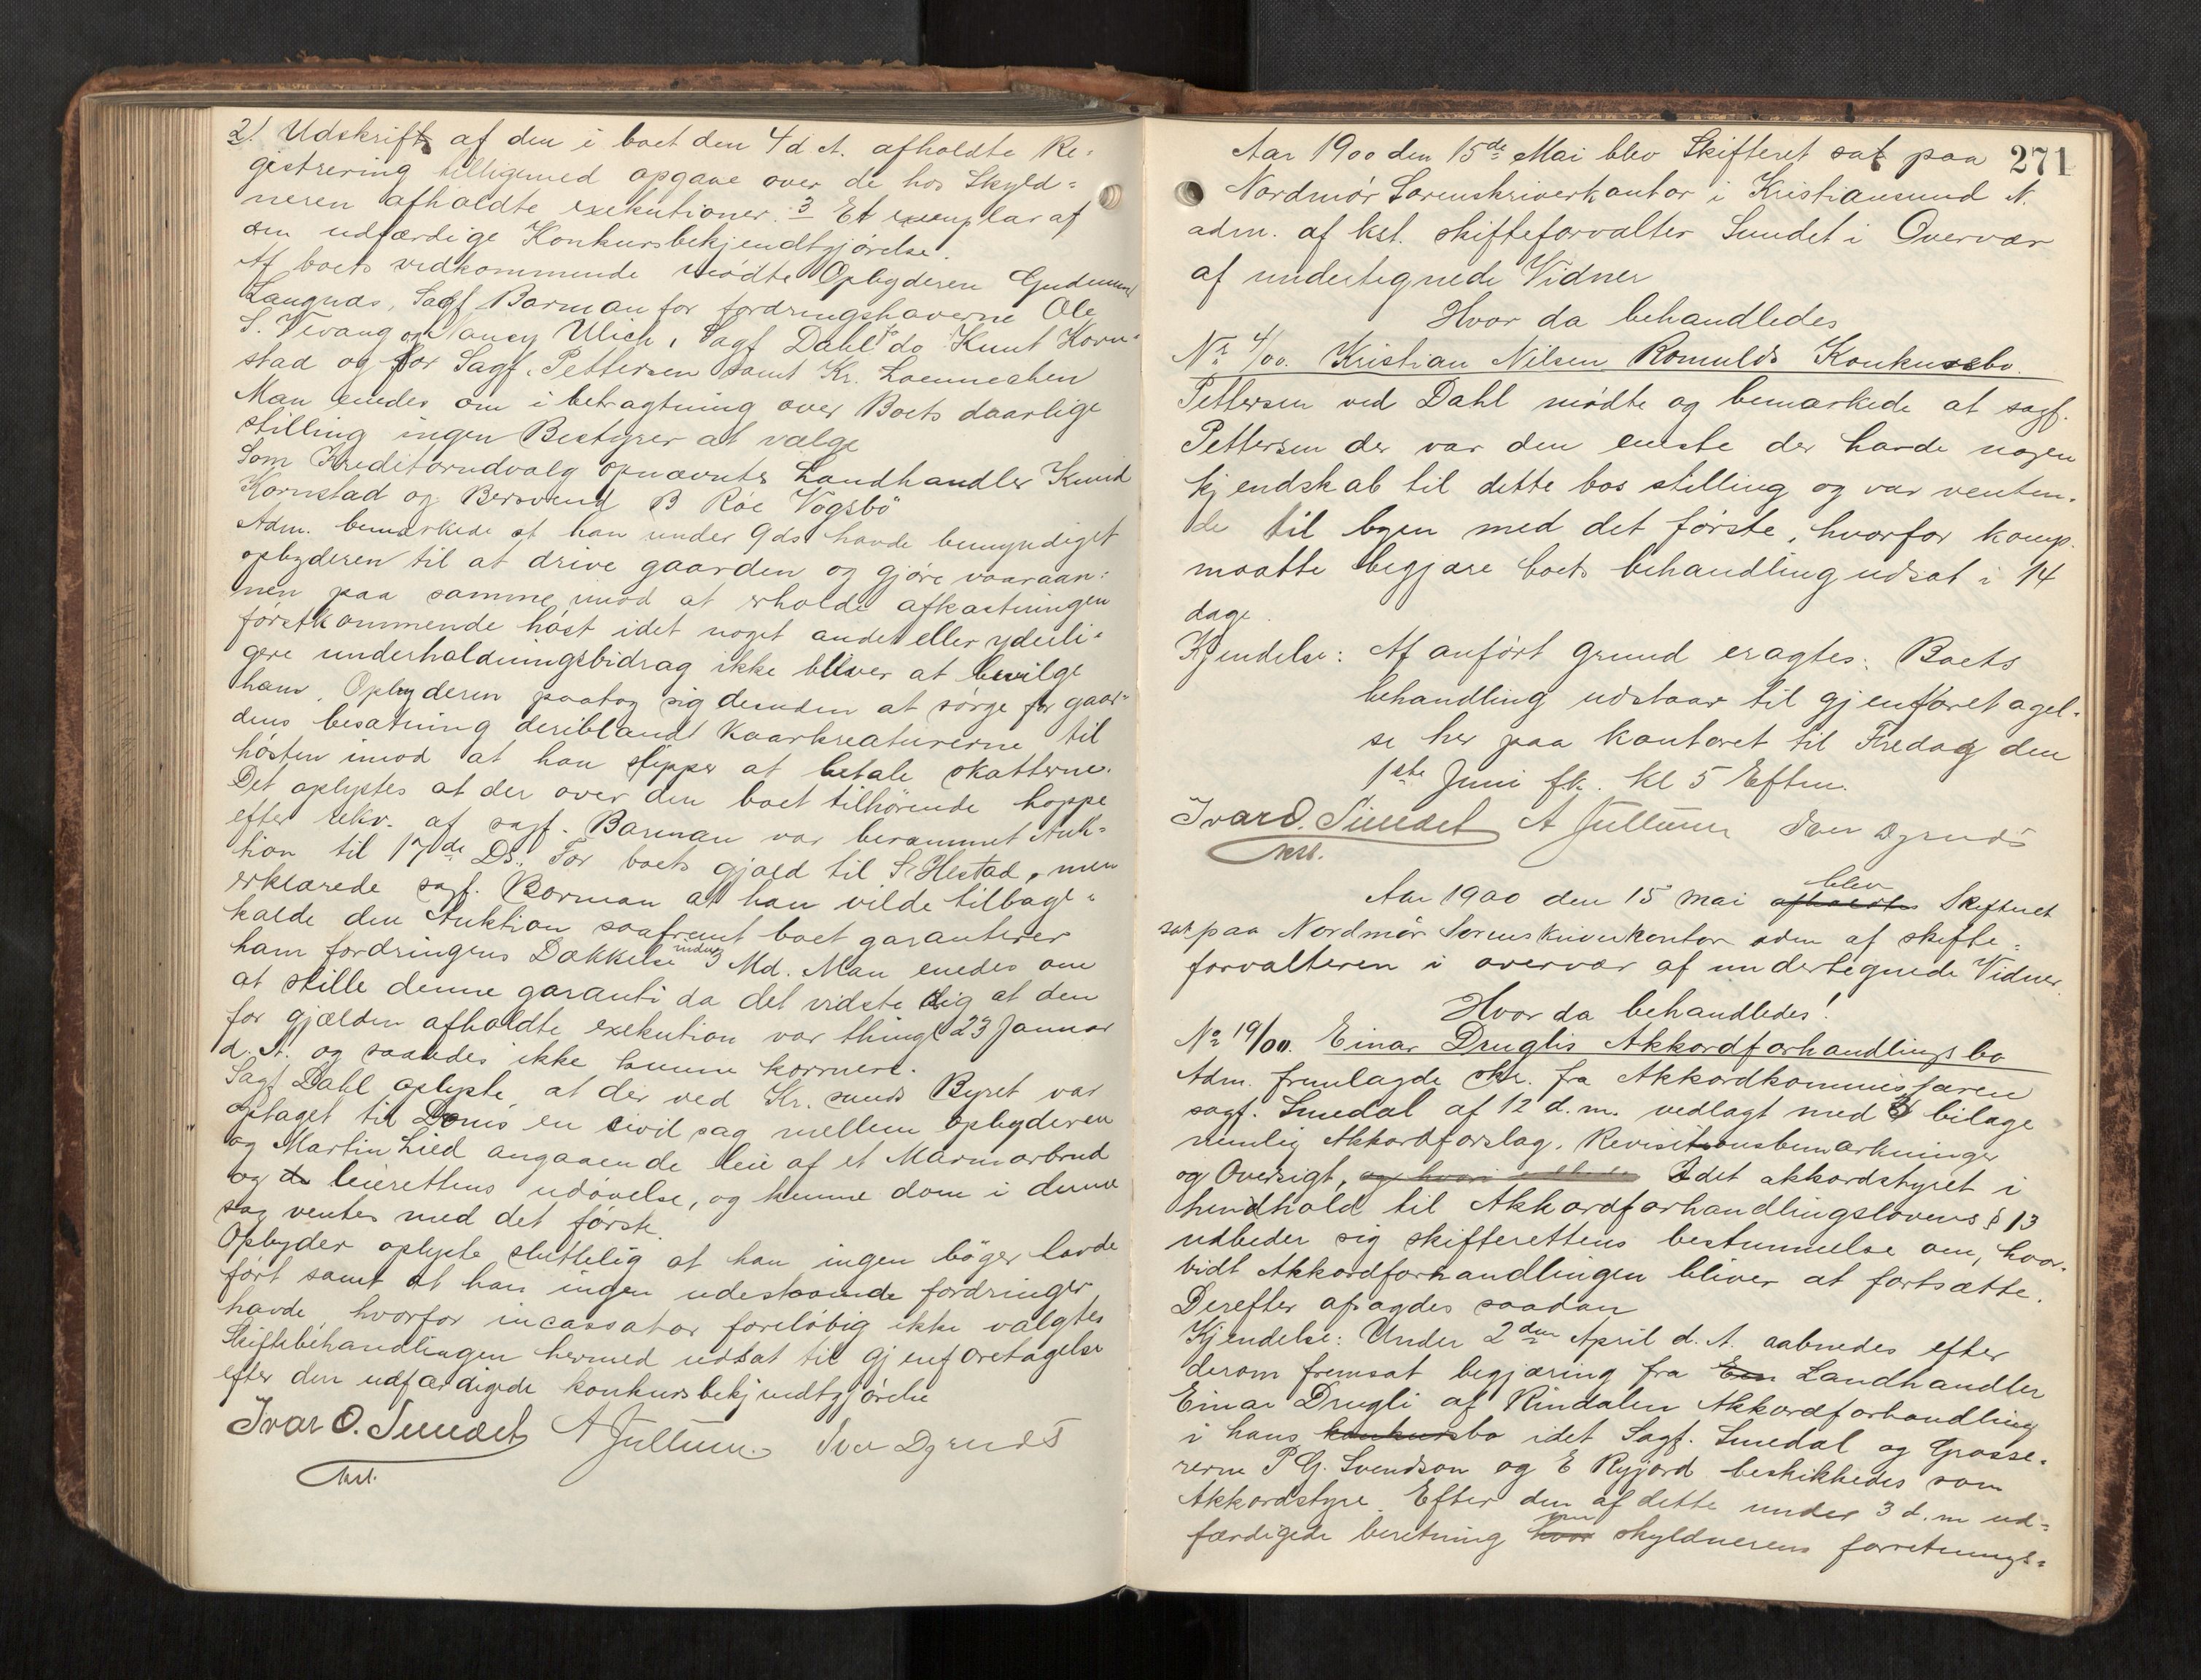 2/ Udskrift af den i boet den 4 d. A. afholdte Re-
gistrering tilligemed opgave over de hos Skyld-
neren afholdte exekutioner. 3 Et exemplar af
den udfærdige Konkursbekjendtgjørelse.
Af boets vedkommende mødte Opbyderen Gudmund
Langnæs, Sagf Barman for fordringshaverne Ole
S. Vevang og Nancy Ulich, Sagf Dahl fo do Knut Korn-
stad og for Sagf. Pettersen samt Kr. Loennechen
Man enedes om i betragtning over Boets daarlige
stilling ingen Bestyrer at vælge
Som Kreditorudvalg opnævntes Landhandler Knud
Kornstad og Bersvend B Röe Vogsbö
Adm. bemærkede at han under 9 ds havde bemyndiget
opbyderen til at drive gaarden og gjøre vaaraan-
nen paa samme imod at erholde afkastningen
førstkommende høst idet noget andet eller yderli-
gere underholdningsbidrag ikke bliver at bevilge
ham. Opbyderen paatog sig desuden at sørge for gaar-
dens besætning deriblandt Kaarkreaturerne til
høsten imod at han slipper at betale skatterne.
Det oplystes at der over den boet tilhørende hoppe
efter rekv. af sagf. Barman var berammet Auk-
tion til 17de Ds. For boets gjæld til S. Hestad, men
erklærede sagf. Barman at han vilde tilbage-
kalde den Auktion saafremt boet garanterer
ham fordringens Dækkelse inden 3 Md. Man enedes om
at stille denne garanti da det vidste sig at den
for gjælden afholdte exekution var thingl 23 Januar
d. A. og saaledes ikke kunne
Sagf Dahl oplyste at der ved Kr.sunds Byret var
optaget til Doms en civil sag mellem opbyderen
og Martin Lied angaaende leie af et Marmorbrud
og de leierettens udøvelse, og kunne dom i denne
sag ventes med det første.
Opbyder oplyste sluttelig at han ingen bøger havde
ført samt at han ingen udestaaende fordringer
havde, hvorfor incassator foreløbig ikke valgtes
Skiftebehandlingen hermed udsat til gjenforetagelse
efter den udfærdigede konkursbekjendtgjørelse
Ivar O. Sundet A Jullum Iver Dyrnæs
kst.
271
Aar 1900 den 15de Mai blev Skifteret sat paa
Nordmør Sorenskriverkontor i Kristiansund N.
adm. af kst. skifteforvalter Sundet i Overvær
af undertegnede Vidner
Hvor da behandledes
Nr 4/00. Kristian Nilsen Romulds Konkursbo.
Pettersen ved Dahl mødte og bemærkede at sagf.
Pettersen der var den eneste der havde nogen
kjendskab til dette bos stilling og var venten-
de til byen med det første, hvorfor komp.
maatte begjære boets behandling udsat i 14
dage.
Kjendelse: Af anført grund eragtes: Boets
behandling udstaar til gjenforetagel-
se her paa kontoret til Fredag den
1ste Juni fk. kl 5 Eftm.
Ivar O. Sundet A Jullum Iver Dyrnæs
kst.
Aar 1900 den 15 Mai afholdtes blev Skifteret
sat paa Nordmør Sorenskriverkontor adm af skifte-
forvalteren i overvær af undertegnede Vidner.
Hvor da behandledes!
No 19/00. Einar Druglis Akkordforhandlingsbo
Adm. fremlagde skr. fra Akkordkommissæren
sagf. Smedal af 12 d.m. vedlagt med 3 bilage
nemlig Akkordforslag, Revisionsbemærkninger
og Oversigt, Idet akkordstyret i
henhold til Akkordforhandlingslovens § 13
udbeder sig skifterettens bestemmelse om, hvor-
vidt Akkordforhandlingen bliver at fortsætte.
Derefter afsagdes saadan
Kjendelse: Under 2den April d. A. aabnedes efter
derom fremsat begjæring fra Ein Landhandler
Einar Drugli af Rindalen Akkordforhandling
i hans konkursbo idet Sagf. Smedal og Grosse-
rerne P G. Svendson og E Ryjord beskikkedes som
Akkordstyre. Efter den af dette under 3 d.m ud-
færdigede beretning hvor om skyldnerens forretnings-